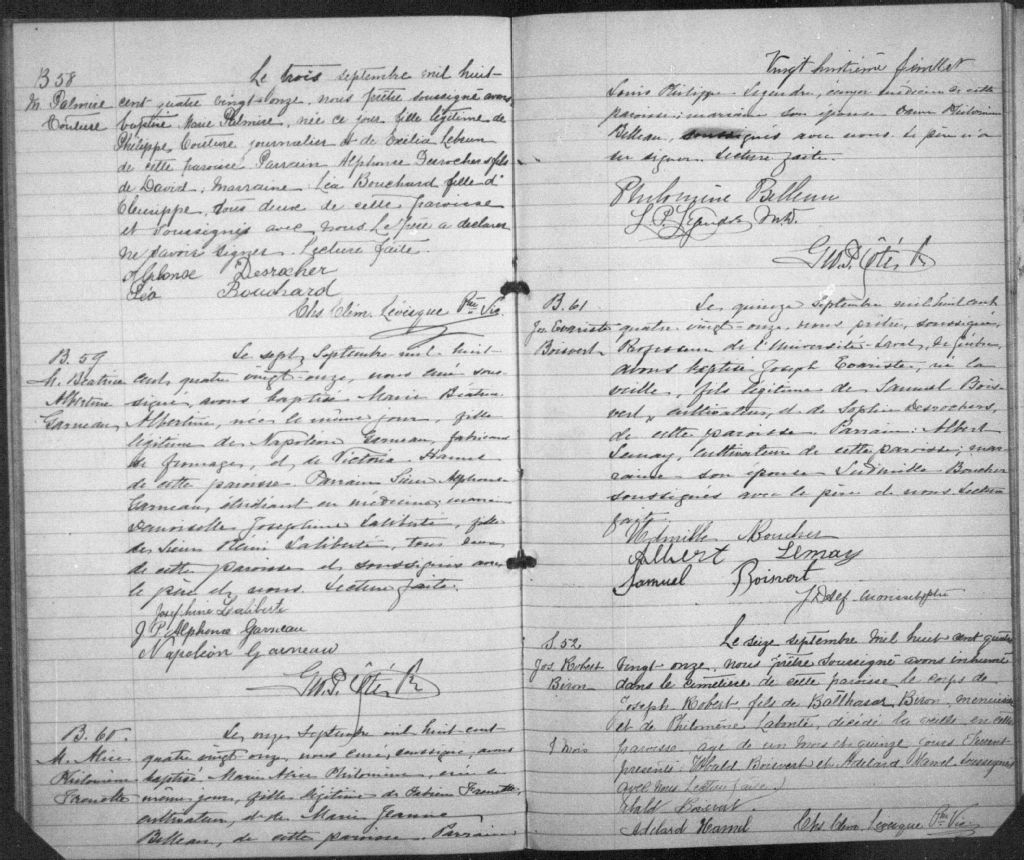 B 58
M. Palmire
Couture
Le trois septembre mil huit-
cent quatre vingt-onze, nous prêtre soussigné avons
baptisé Marie Palmire, née ce jour fille légitime de
Philippe Couture journalier et de Exilia Lebrun
de cette paroisse. Parrain Alphonse Desrochers fils
de David, Marraine Léa Bouchard fille d'
Elusippe, tous deux de cette paroisse
et soussignés avec nous. Le père a déclaré
ne savoir signer. Lecture faite.
Alphonse Desrocher
Léa Bouchard
Chs Clém. Lévesque Ptre Vic.
B. 59
M. Béatrice
Albertine
Garneau
Le sept Septembre mil huit-
cent quatre vingt-onze, nous curé sous-
signé, avons baptisé Marie Béatrice
Albertine, née le même jour, fille
légitime de Napoléon Garneau, fabricant
de fromages, et de Victoria Hamel
de cette paroisse. Parrain Sieur Alphonse
Garneau, étudiant en médecine; marraine
Demoiselle Josephine Laliberté, fille
de Sieur Rémi Laliberté, tous deux
de cette paroisse et soussignés avec
le père et nous. Lecture faite.
Josephine Laliberté
J. P. Alphonse Garneau
Napoléon Garneau
Geo. P. Côté, Ptre
B. 60.
M. Alice
Philomène
Trenotte
Le onze Septembre mil huit cent
quatre vingt onze, nous curé, soussigné, avons
baptisé Marie Alice Philomène, née le
même jour, fille légitime de
cultivateur, et de Marie Jeanne
Belleau, de cette paroisse. Parrain
Vingt huitième feuillet
Louis Philippe Légendre, médecin de cette
paroisse; marraine son épouse Dame Philomène
Belleau, soussignés avec nous. Le père n'a
su signer. Lecture faite.
Philomène Belleau
L. P. Légendre M.D.
Geo. P. Côté, Ptre
B. 61.
Jos. Evariste
Boisvert
Le quinze Septembre mil huit cent
quatre vingt-onze, nous prêtre, soussigné,
Professeur de l'Université-Laval, de Québec,
avons baptisé Joseph Evariste, né la
veille, fils légitime de Samuel Bois-
vert, cultivateur, et de Sophie Desrochers,
de cette paroisse. Parrain: Albert
Lemay, cultivateur de cette paroisse; mar-
raine son épouse Ludmille Boucher
soussignés avec le père et nous. Lecture
faite.
Ludmille Boucher
Albert Lemay
Samuel Boisvert
S. 52
Jos. Robert
Biron
1 mois
Le seize septembre mil huit cent quatre
vingt onze, nous prêtre soussigné avons inhumé
dans le cimetière de cette paroisse le corps de
Joseph Robert fils de Balthasar Biron, menuisier
et de Philomène décédé la veille en cette
paroisse, agé de un mois et quinze jours. Furent
présents: Ubald Boisvert et Adélard Hamel soussignés
avec nous. Lecture faite.
Ubald Boisvert
Adélard Hamel
Chs Clém. Lévesque Ptre Vic